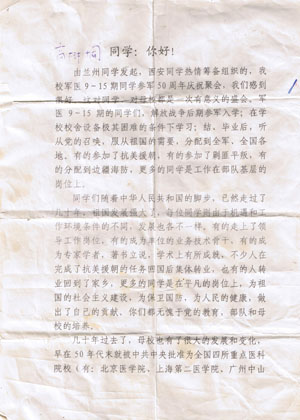 同学：你好！
由兰州同学发起，西安同学热情筹备组织的，我
校军医9－15期同学参军50周年庆祝聚会，我们感到
果好，这对同学、对母校都是一次有意义的盛会。军
医9－15期的同学们，解放战争后期参军入学；在学
校校舍设备极其困难的条件下学习；结、毕业后，听
从党的召唤，服从祖国的需要，分配到全军、全国各
地。有的参加了抗美援朝，有的参加了剿匪平叛，有
的分配到边疆海防，更多的同学是工作在部队基层的
岗位上。
同学们随着中华人民共和国的脚步，已然走过了
几十年。祖国发展强大了，每位同学则由于机遇和工
作环境条件的不同，发展也各不一样。有的走上了领
导工作岗位，有的成为单位的业务技术骨干，有的成
为专家学者，著书立说，学术上有所成就。不少人在
完成了抗美援朝的任务回国后集体转业，也有的人转
业回到了家乡，更多的同学是在平凡的岗位上，为祖
国的社会主义建设，为保卫国防，为人民的健康，做
出了自己的贡献，你们都无愧于党的教育，部队和母
校的培养。
几十年过去了，母校也有了很大的发展和变化，
早在50年代末就被中共中央批准为全国四所重点医科
院校（有：北京医学院、上海第二医学院、广州中山